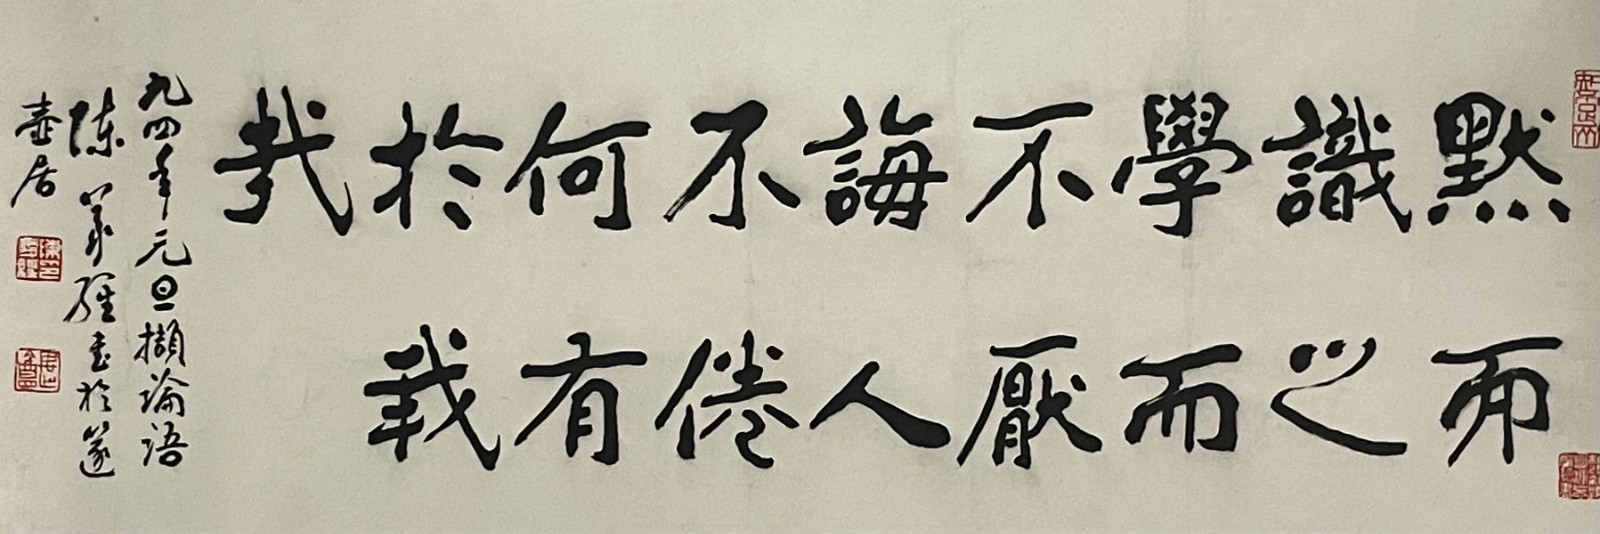 默而
識之
學而
不厭
誨人
不倦
何有
於我
哉
九四年元旦擷論語
陳書於
壺居